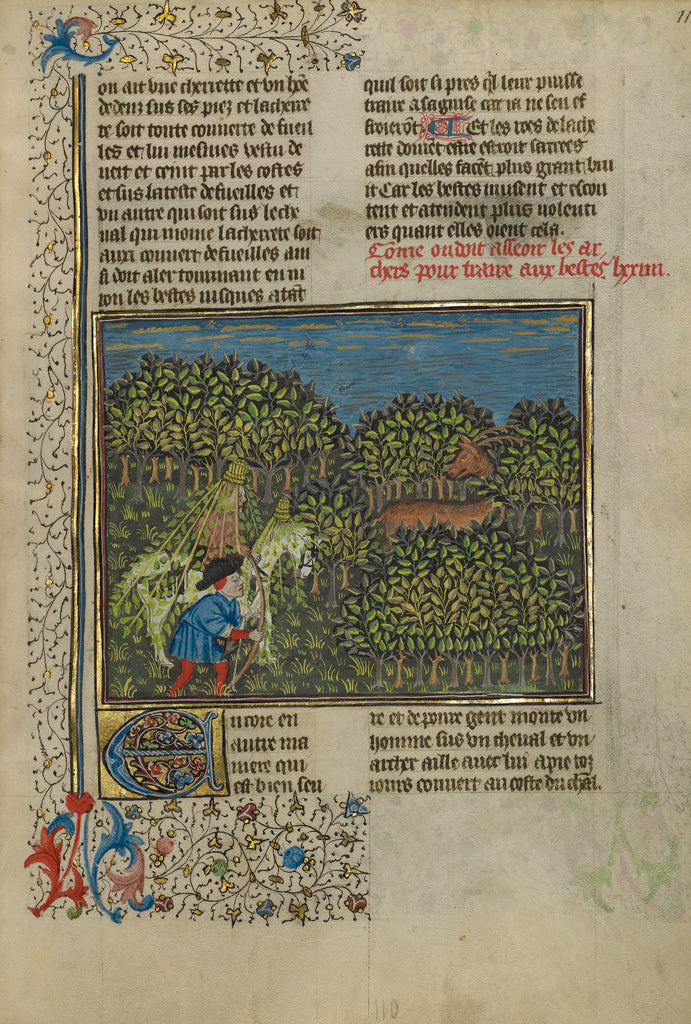 on ait une cherrette et un hõe
dedens sus ses piez et la cherre
te soit toute couuerte de fueil
les et lui mesmes vestu de
uert et ceint par les costes
et sus la teste de fueilles et
un autre qui soit sus le che
ual qui moine la cherrete soit
aussi couuert de fueilles ainsi
si doit aler tournant en ui
ron les bestes iusques a tãt
quil soit si pres ql leur puisse
traire a sa guise car ia ne sen ef
froierõt Et les roes de la che
rette doiuẽt estre
afin quelles facẽt plus grant bru
it Car les bestes musent et escou
tent et atendent plus uolenti
ers quant elles oient cela.
Cõme on doit asseoir les ar
chers pour traire aux bestes lxxiiii.
Encore en
autre ma
niere qui
est bien seu
re et de poure gent monte un
homme sus un cheual et un
archer aille auec lui a pie toz
iours couuert au coste du chãl.
110